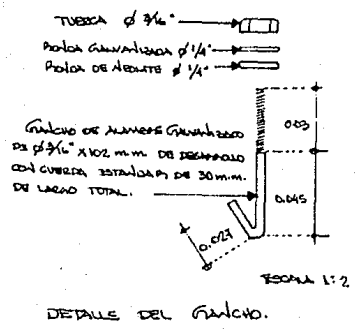 TUERCA Ø 3/16"
RONDA GALVANIZADA Ø 1/4"
RONDA DE NEOLITE Ø 1/4"
GANCHO DE ALAMBRE GALVANIZADO
DE Ø 3/16" X 102 m.m. DE DESARROLLO
CON CUERDA ESTANDAR DE 30 m.m.
DE LARGO TOTAL.
0.03
0.045
0.027
ESCALA 1:2
DETALLE DEL GANCHO.